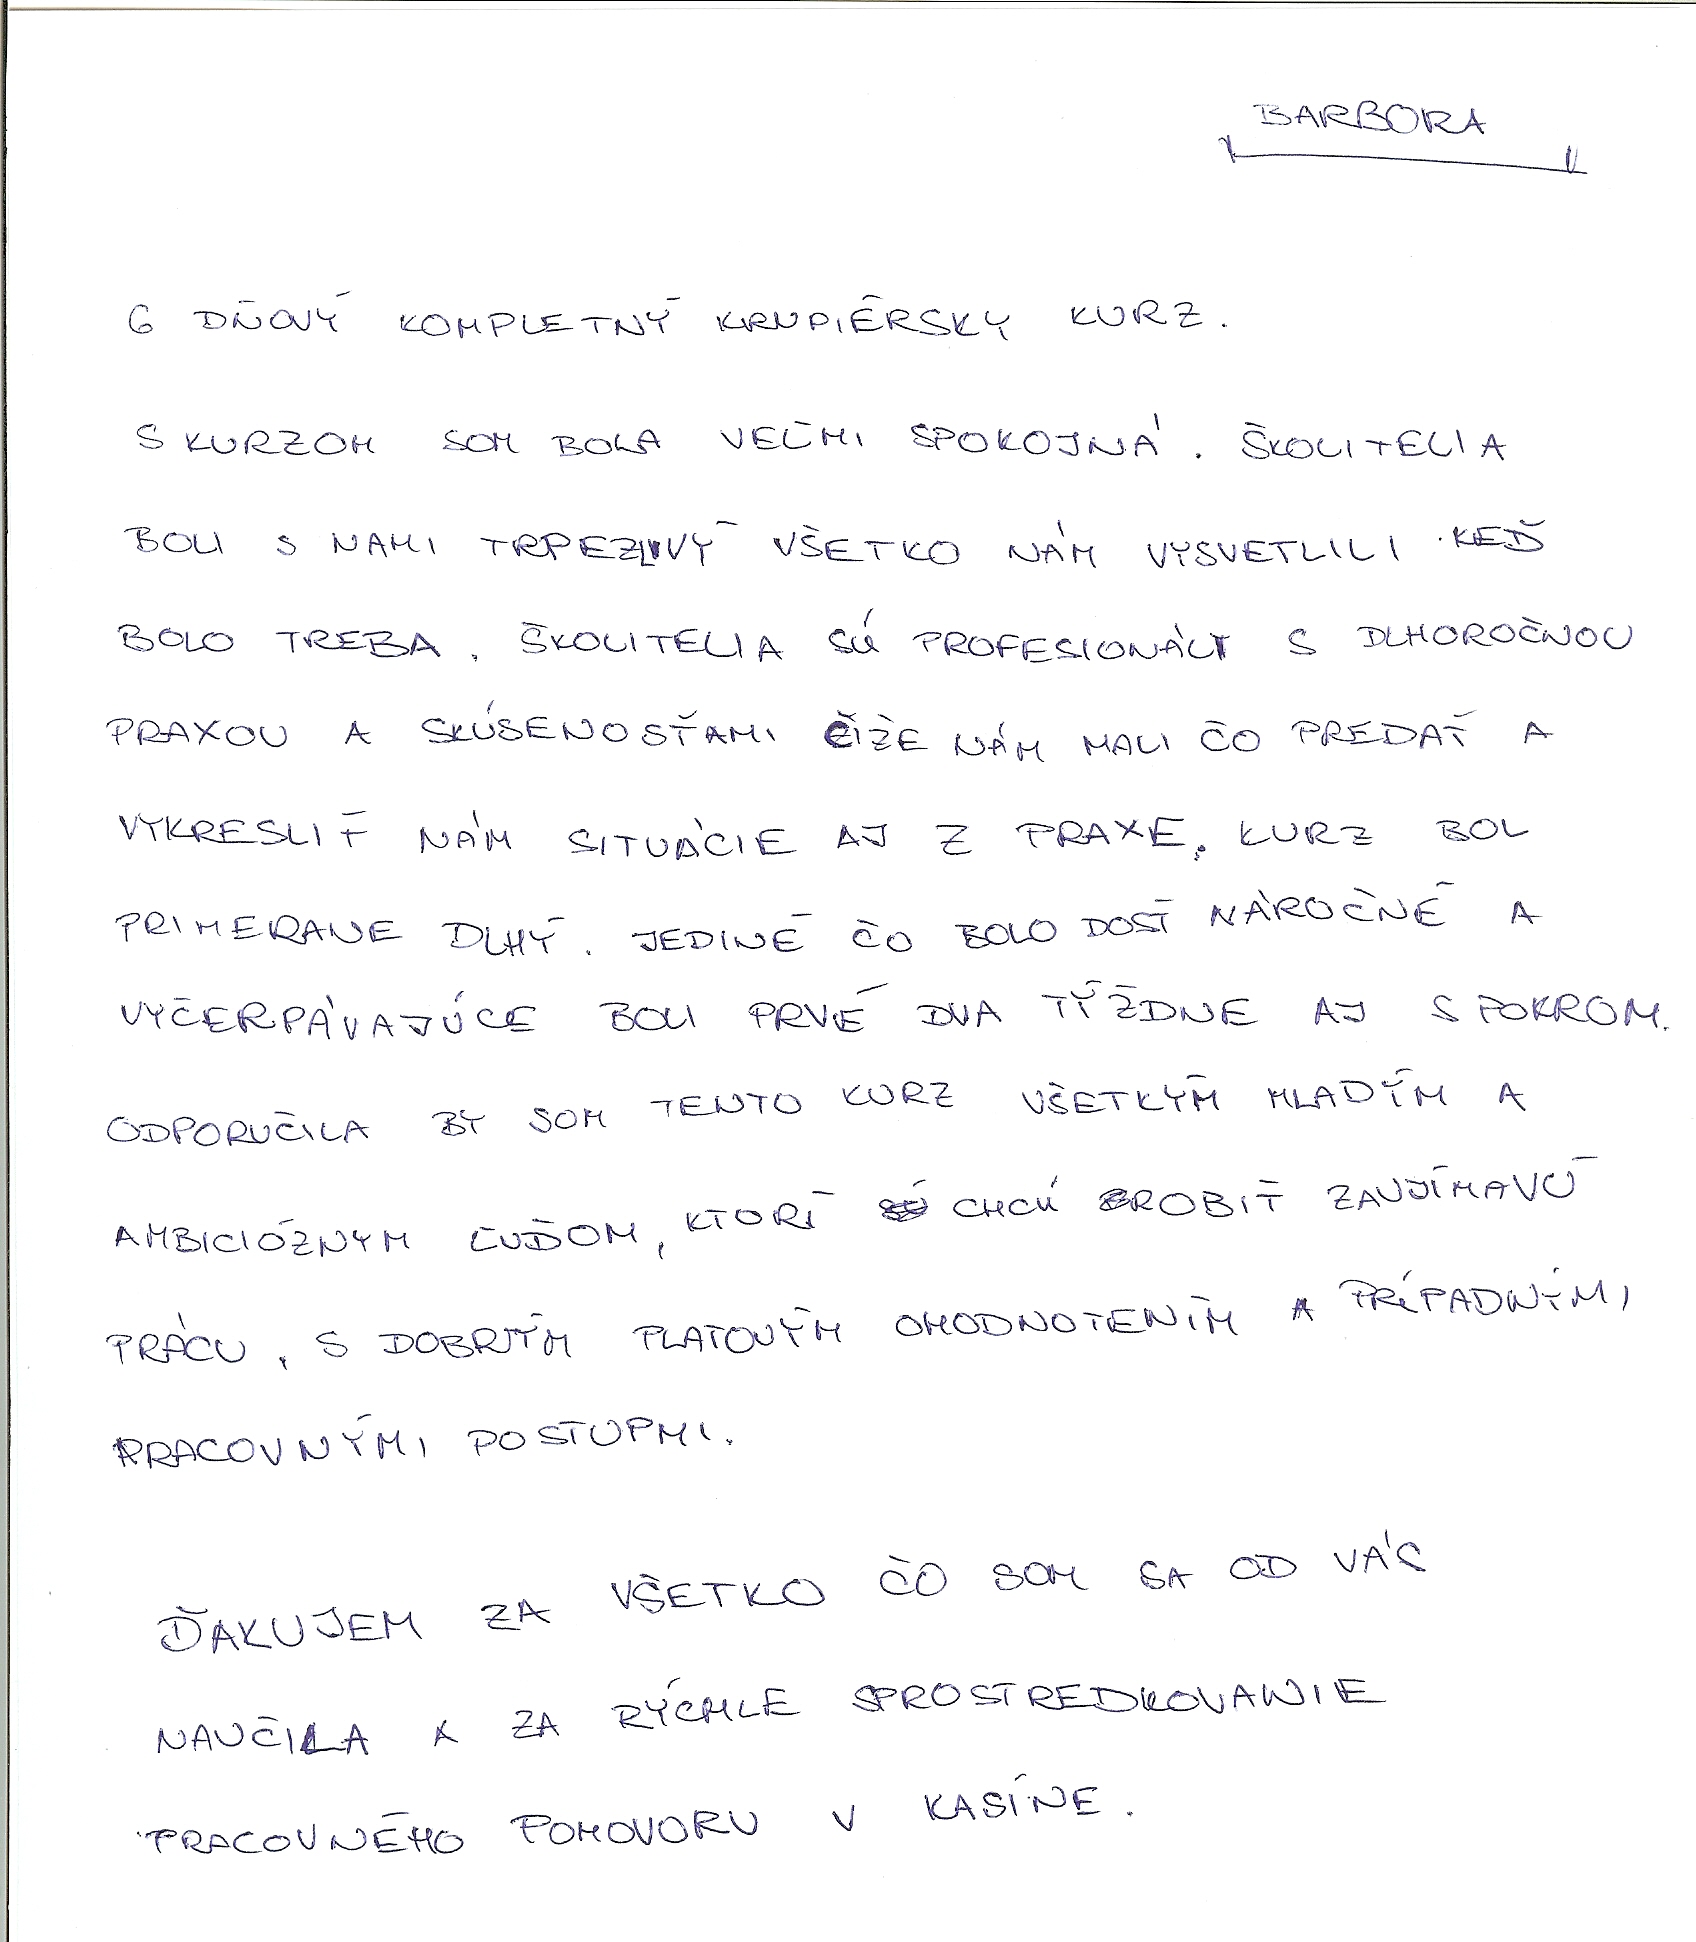 BARBORA
6 DŇOVÝ KOMPLETNÝ KRUPIÉRSKY KURZ.
S KURZOM SOM BOLA VEĽMI SPOKOJNÁ. ŠKOLITELIA
BOLI S NAMI TRPEZLIVÝ VŠETKO NÁM VYSVETLILI KEĎ
BOLO TREBA. ŠKOLITELIA SÚ PROFESIONÁLI S DLHOROČNOU
PRAXOU A SKÚSENOSŤAMI ČIŽE NÁM MALI ČO PREDAŤ A
VYKRESLIŤ NÁM SITUÁCIE AJ Z PRAXE. KURZ BOL
PRIMERANE DLHÝ. JEDINÉ ČO BOLO DOSŤ NÁROČNÉ A
VYČERPÁVAJÚCE BOLI PRVÉ DVA TÝŽDNE AJ S POKROM.
ODPORUČILA BY SOM TENTO KURZ VŠETKÝM MLADÝM A
AMBICIÓZNYM ĽUĎOM, KTORÍ CHCÚ ROBIŤ ZAUJÍMAVÚ
PRÁCU, S DOBRÝM PLATOVÝM OHODNOTENÍM A PRÍPADNÝMI
PRACOVNÝMI POSTUPMI.
ĎAKUJEM ZA VŠETKO ČO SOM SA OD VÁS
NAUČILA A ZA RÝCHLE SPROSTREDKOVANIE
PRACOVNÉHO POHOVORU V KASÍNE.